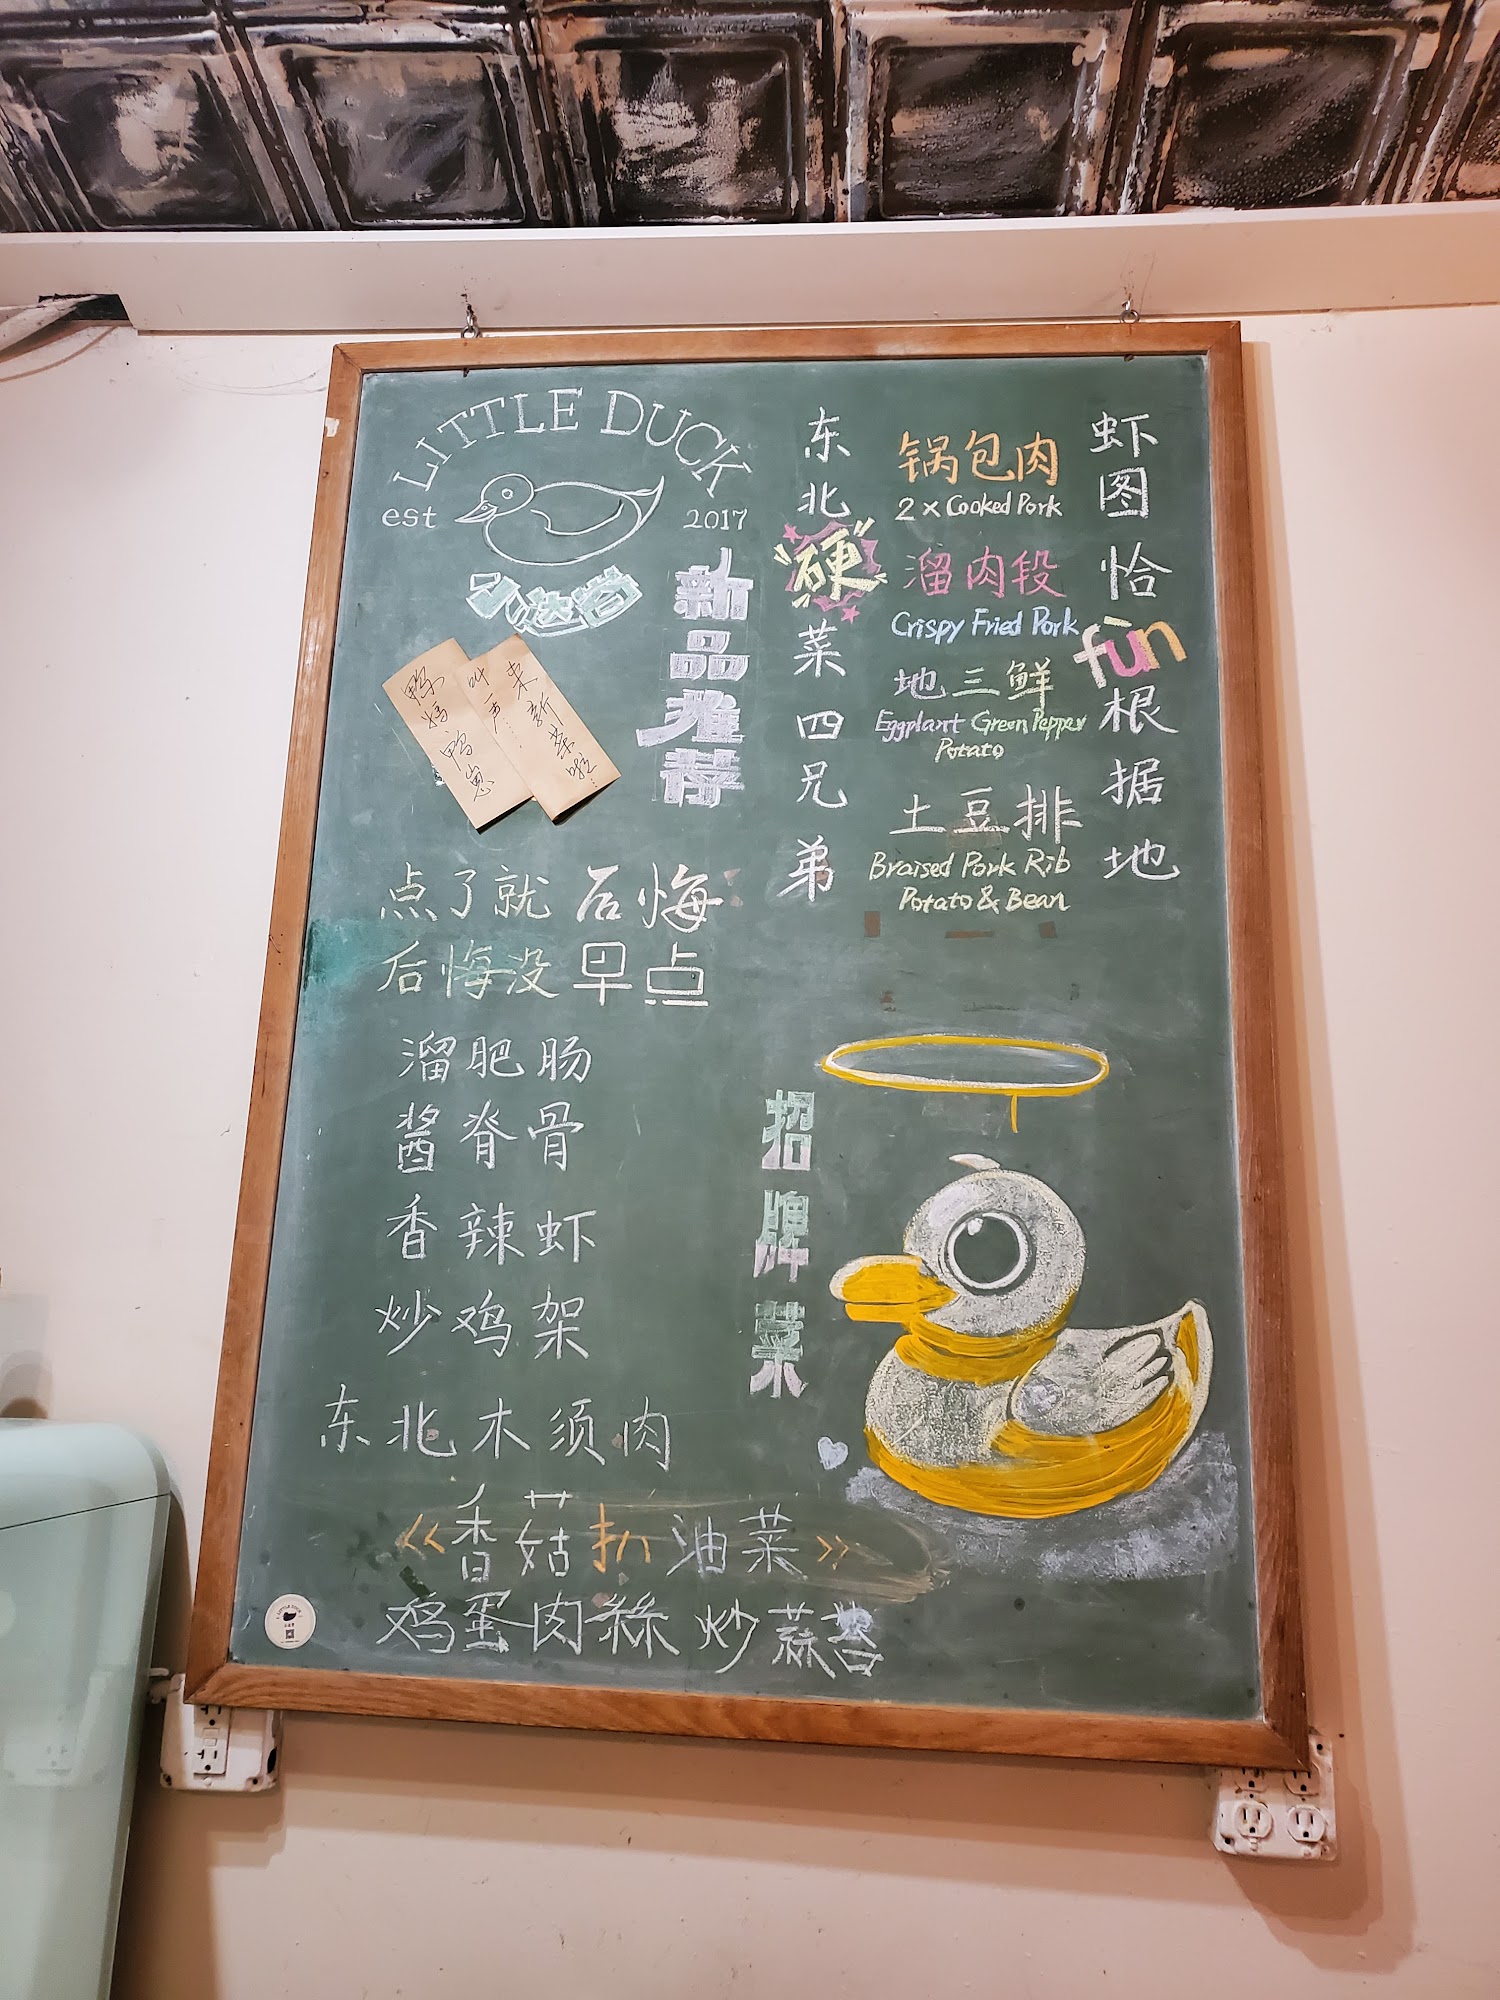 LITTLE DUCK
est 2017
新品推荐
鸭妈 鸭崽
叫声...
来新菜啦...
点了就后悔
后悔没早点
溜肥肠
酱脊骨
香辣虾
炒鸡架
东北木须肉
<<香菇扒油菜>>
鸡蛋肉絲炒蒜苔
东北硬菜四兄弟
锅包肉
2 x Cooked Pork
溜肉段
Crispy Fried Pork
地三鲜
Eggplant Green Pepper
Potato
土豆排
Braised Pork Rib
Potato & Bean
虾图恰fùn根据地
招牌菜